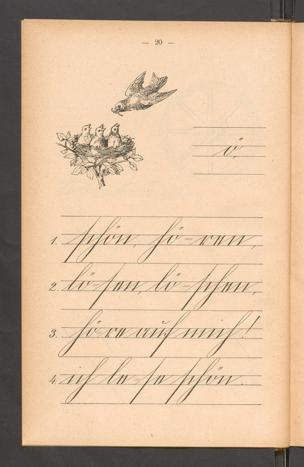 — 20 —
ö.
1. schön, hö-ren,
2. lö-sen, lö-schen,
3. hö-re auf mich!
4. ich le-se schön.